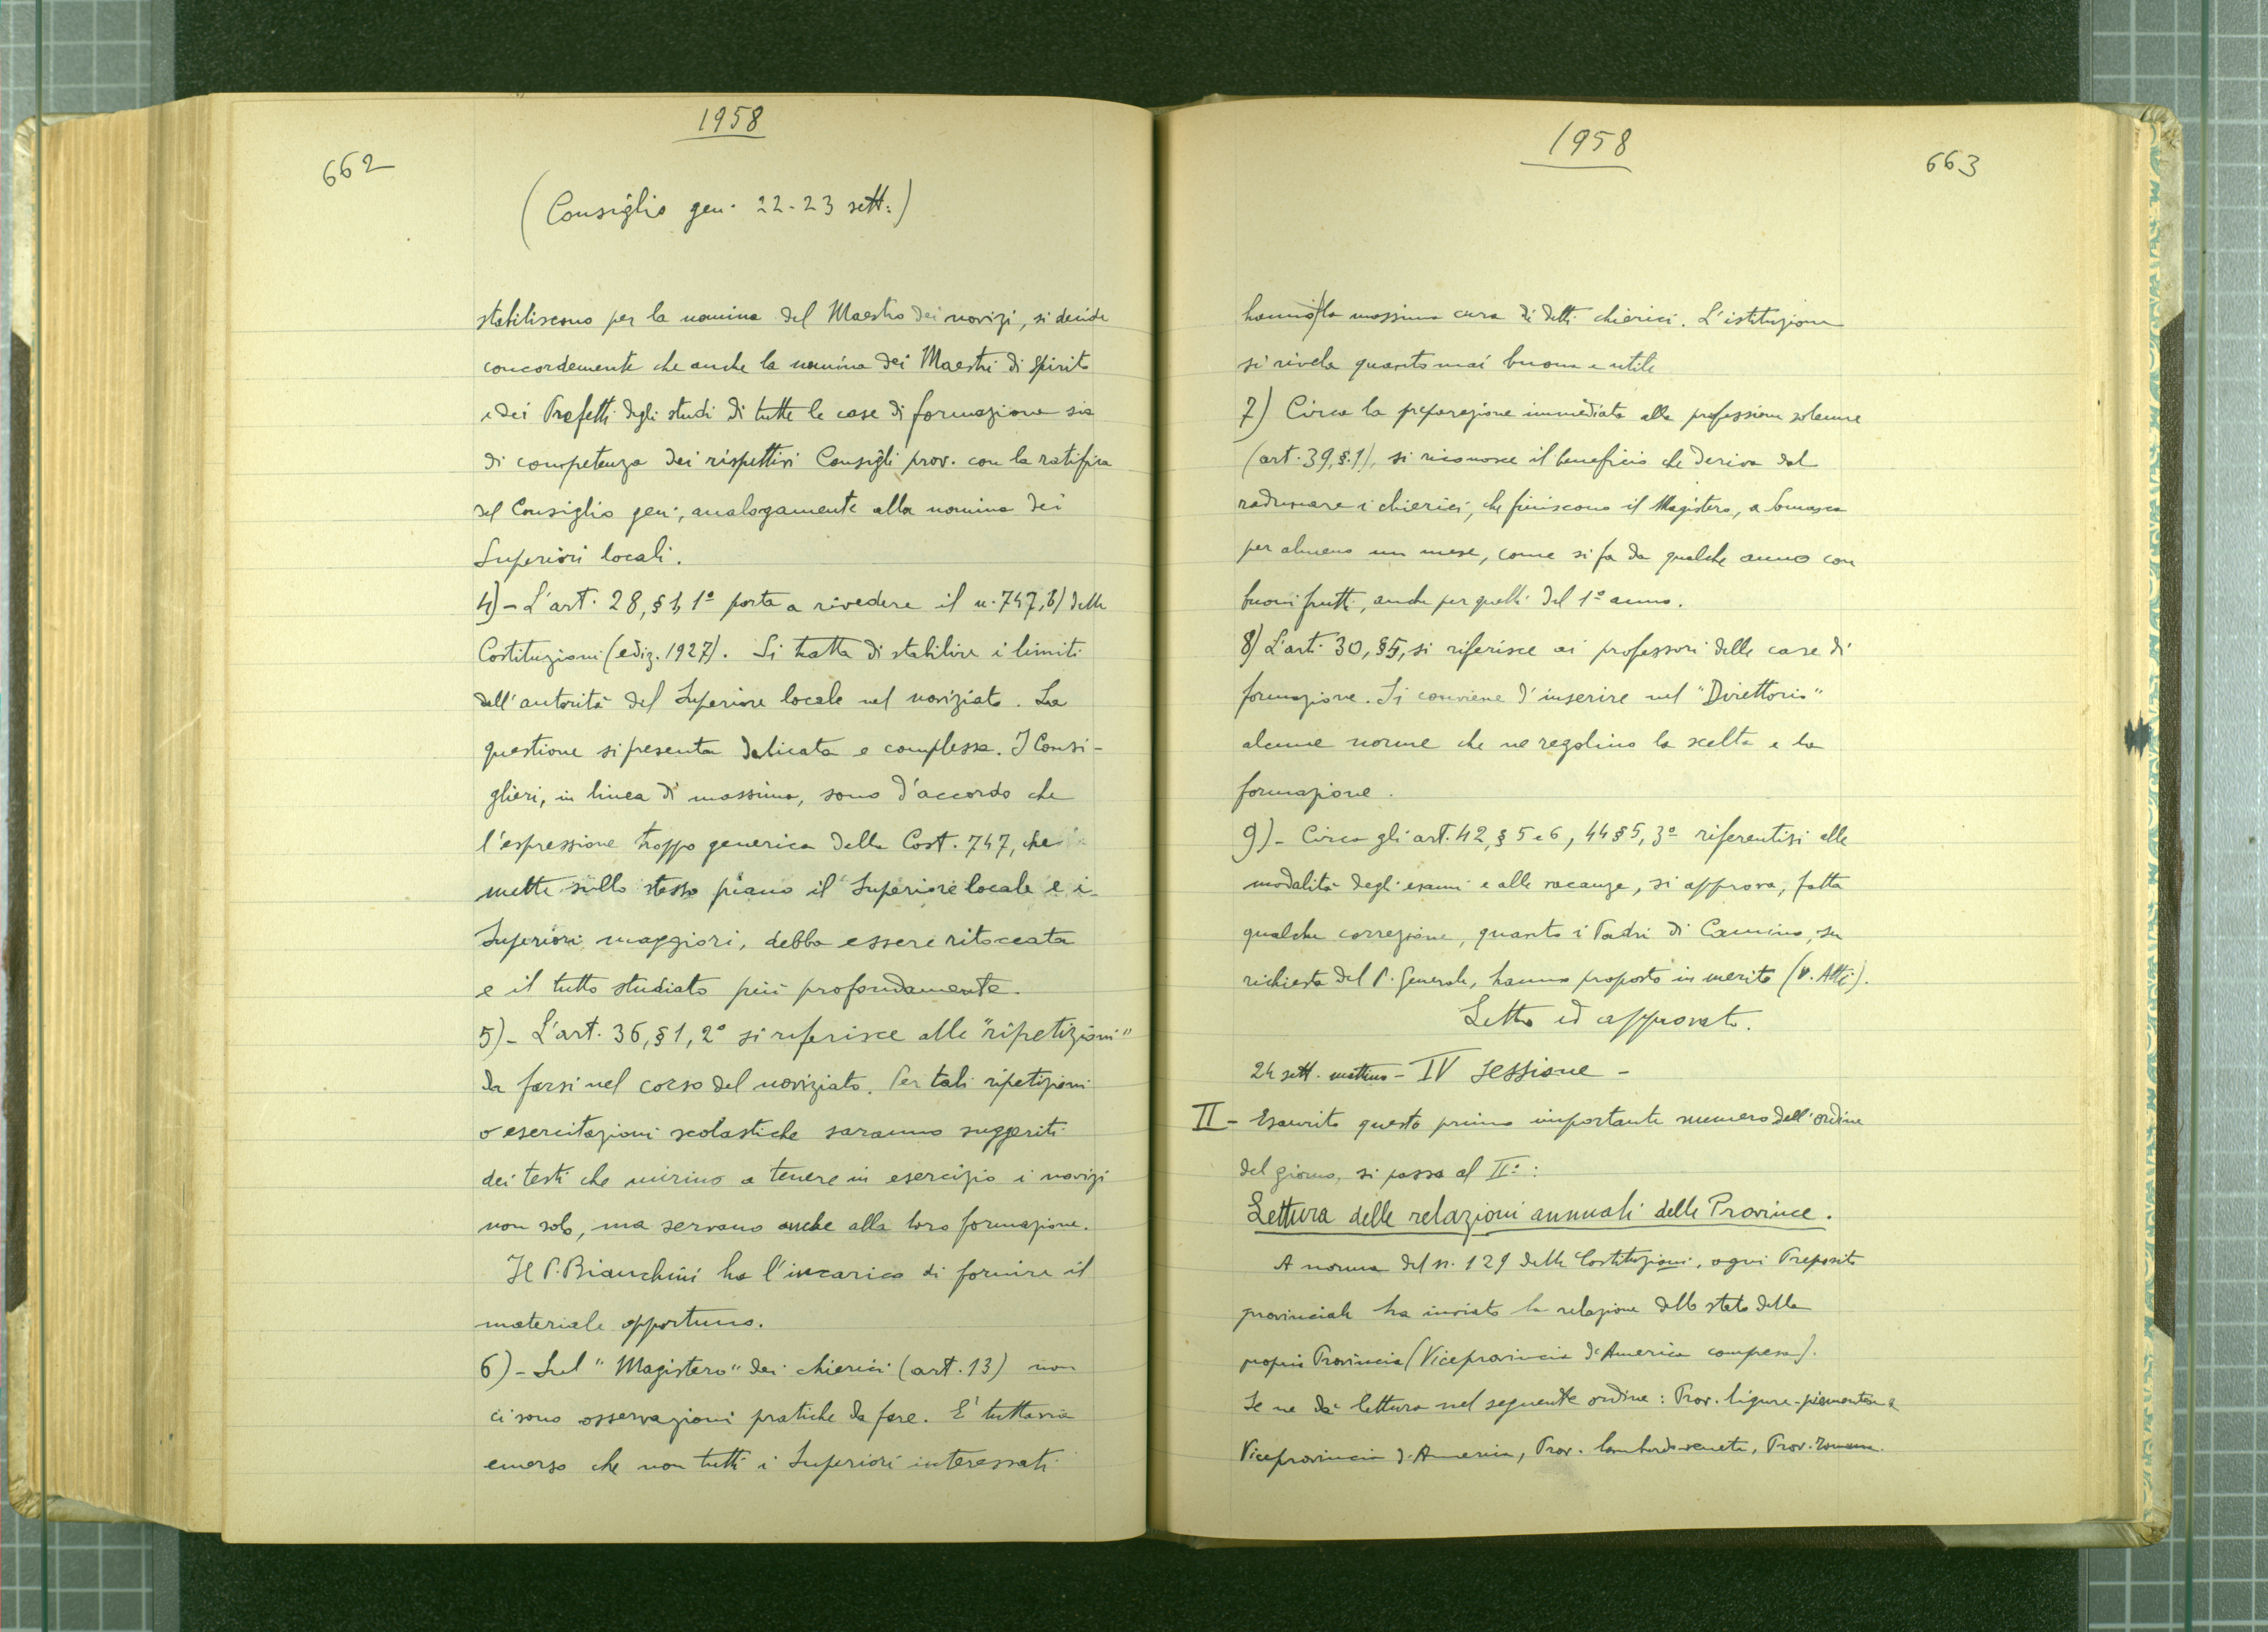 1958
662
(Consiglio gen. 22-23 sett.)
stabiliscono per la nomina del Maestro dei novizi, si decide
concordemente che anche la nomina dei Maestri di Spirito
e dei Prefetti degli studi di tutte le case di formazione sia
di competenza dei rispettivi Consigli prov. con la ratifica
del Consiglio gen., analogamente alla nomina dei
Superiori locali.
4) - L'art. 28, § 1, 1º porta a rivedere il n. 747, b) delle
Costituzioni (ediz. 1927). Si tratta di stabilire i limiti
dell'autorità del Superiore locale nel noviziato. La
questione si presenta delicata e complessa. I Consi-
glieri, in linea di massima, sono d'accordo che
l'espressione troppo generica della Cost. 747, che
mette sullo stesso piano il Superiore locale e i
Superiori maggiori, debba essere ritoccata
e il tutto studiato più profondamente.
5) - L'art. 36, § 1, 2º si riferisce alle "ripetizioni"
da farsi nel corso del noviziato. Per tali ripetizioni
o esercitazioni scolastiche saranno suggeriti
dei testi che mirino a tenere in esercizio i novizi
non solo, ma servano anche alla loro formazione.
Il P. Bianchini ha l'incarico di fornire il
materiale opportuno.
6) - Sul "Magistero" dei chierici (art. 13) non
ci sono osservazioni pratiche da fare. E' tuttavia
emerso che non tutti i Superiori interessati
1958
663
hanno la massima cura di detti chierici. L'istituzione
si rivela quanto mai buona e utile
7) Circa la preparazione immediata alla professione solenne
(art. 39, §. 1), si riconosce il beneficio che deriva dal
radunare i chierici, che finiscono il Magistero, a Somasca
per almeno un mese, come si fa da qualche anno con
buoni frutti, anche per quelli del 1º anno.
8) L'art. 30, § 5, si riferisce ai professori delle case di
formazione. Si conviene d'inserire nel "Direttorio"
alcune norme che ne regolino la scelta e la
formazione.
9) - Circa gli art. 42, § 5 e 6, 44 § 5, 3º riferentisi alle
modalità degli esami e alle vacanze, si approva, fatta
qualche correzione, quanto i Padri di Camino, su
richiesta del P. Generale, hanno proposto in merito (v. Atti).
Letto ed approvato.
24 sett. mattino - IV sessione -
II - Esaurito questo primo importante numero dell'ordine
del giorno, si passa al IIº:
Lettura delle relazioni annuali delle Province.
A norma del n. 129 delle Costituzioni, ogni Preposito
provinciale ha inviato la relazione dello stato della
propria Provincia (Viceprovincia d'America compresa).
Se ne dà lettura nel seguente ordine: Prov. ligure-piemontese
Viceprovincia d'America, Prov. lombardo-veneta, Prov. romana.